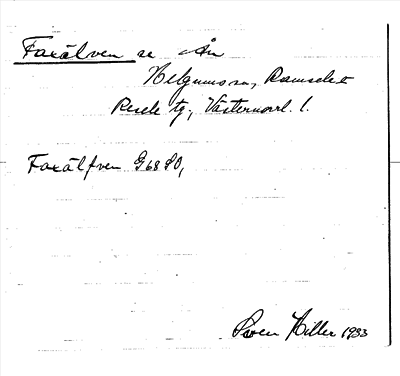 Faxälven se Ån
Helgumssn, Ramsele
Resele tg, Västernorrl. l.
Faxälfven G 68 SO,
Sven Hiller 1933